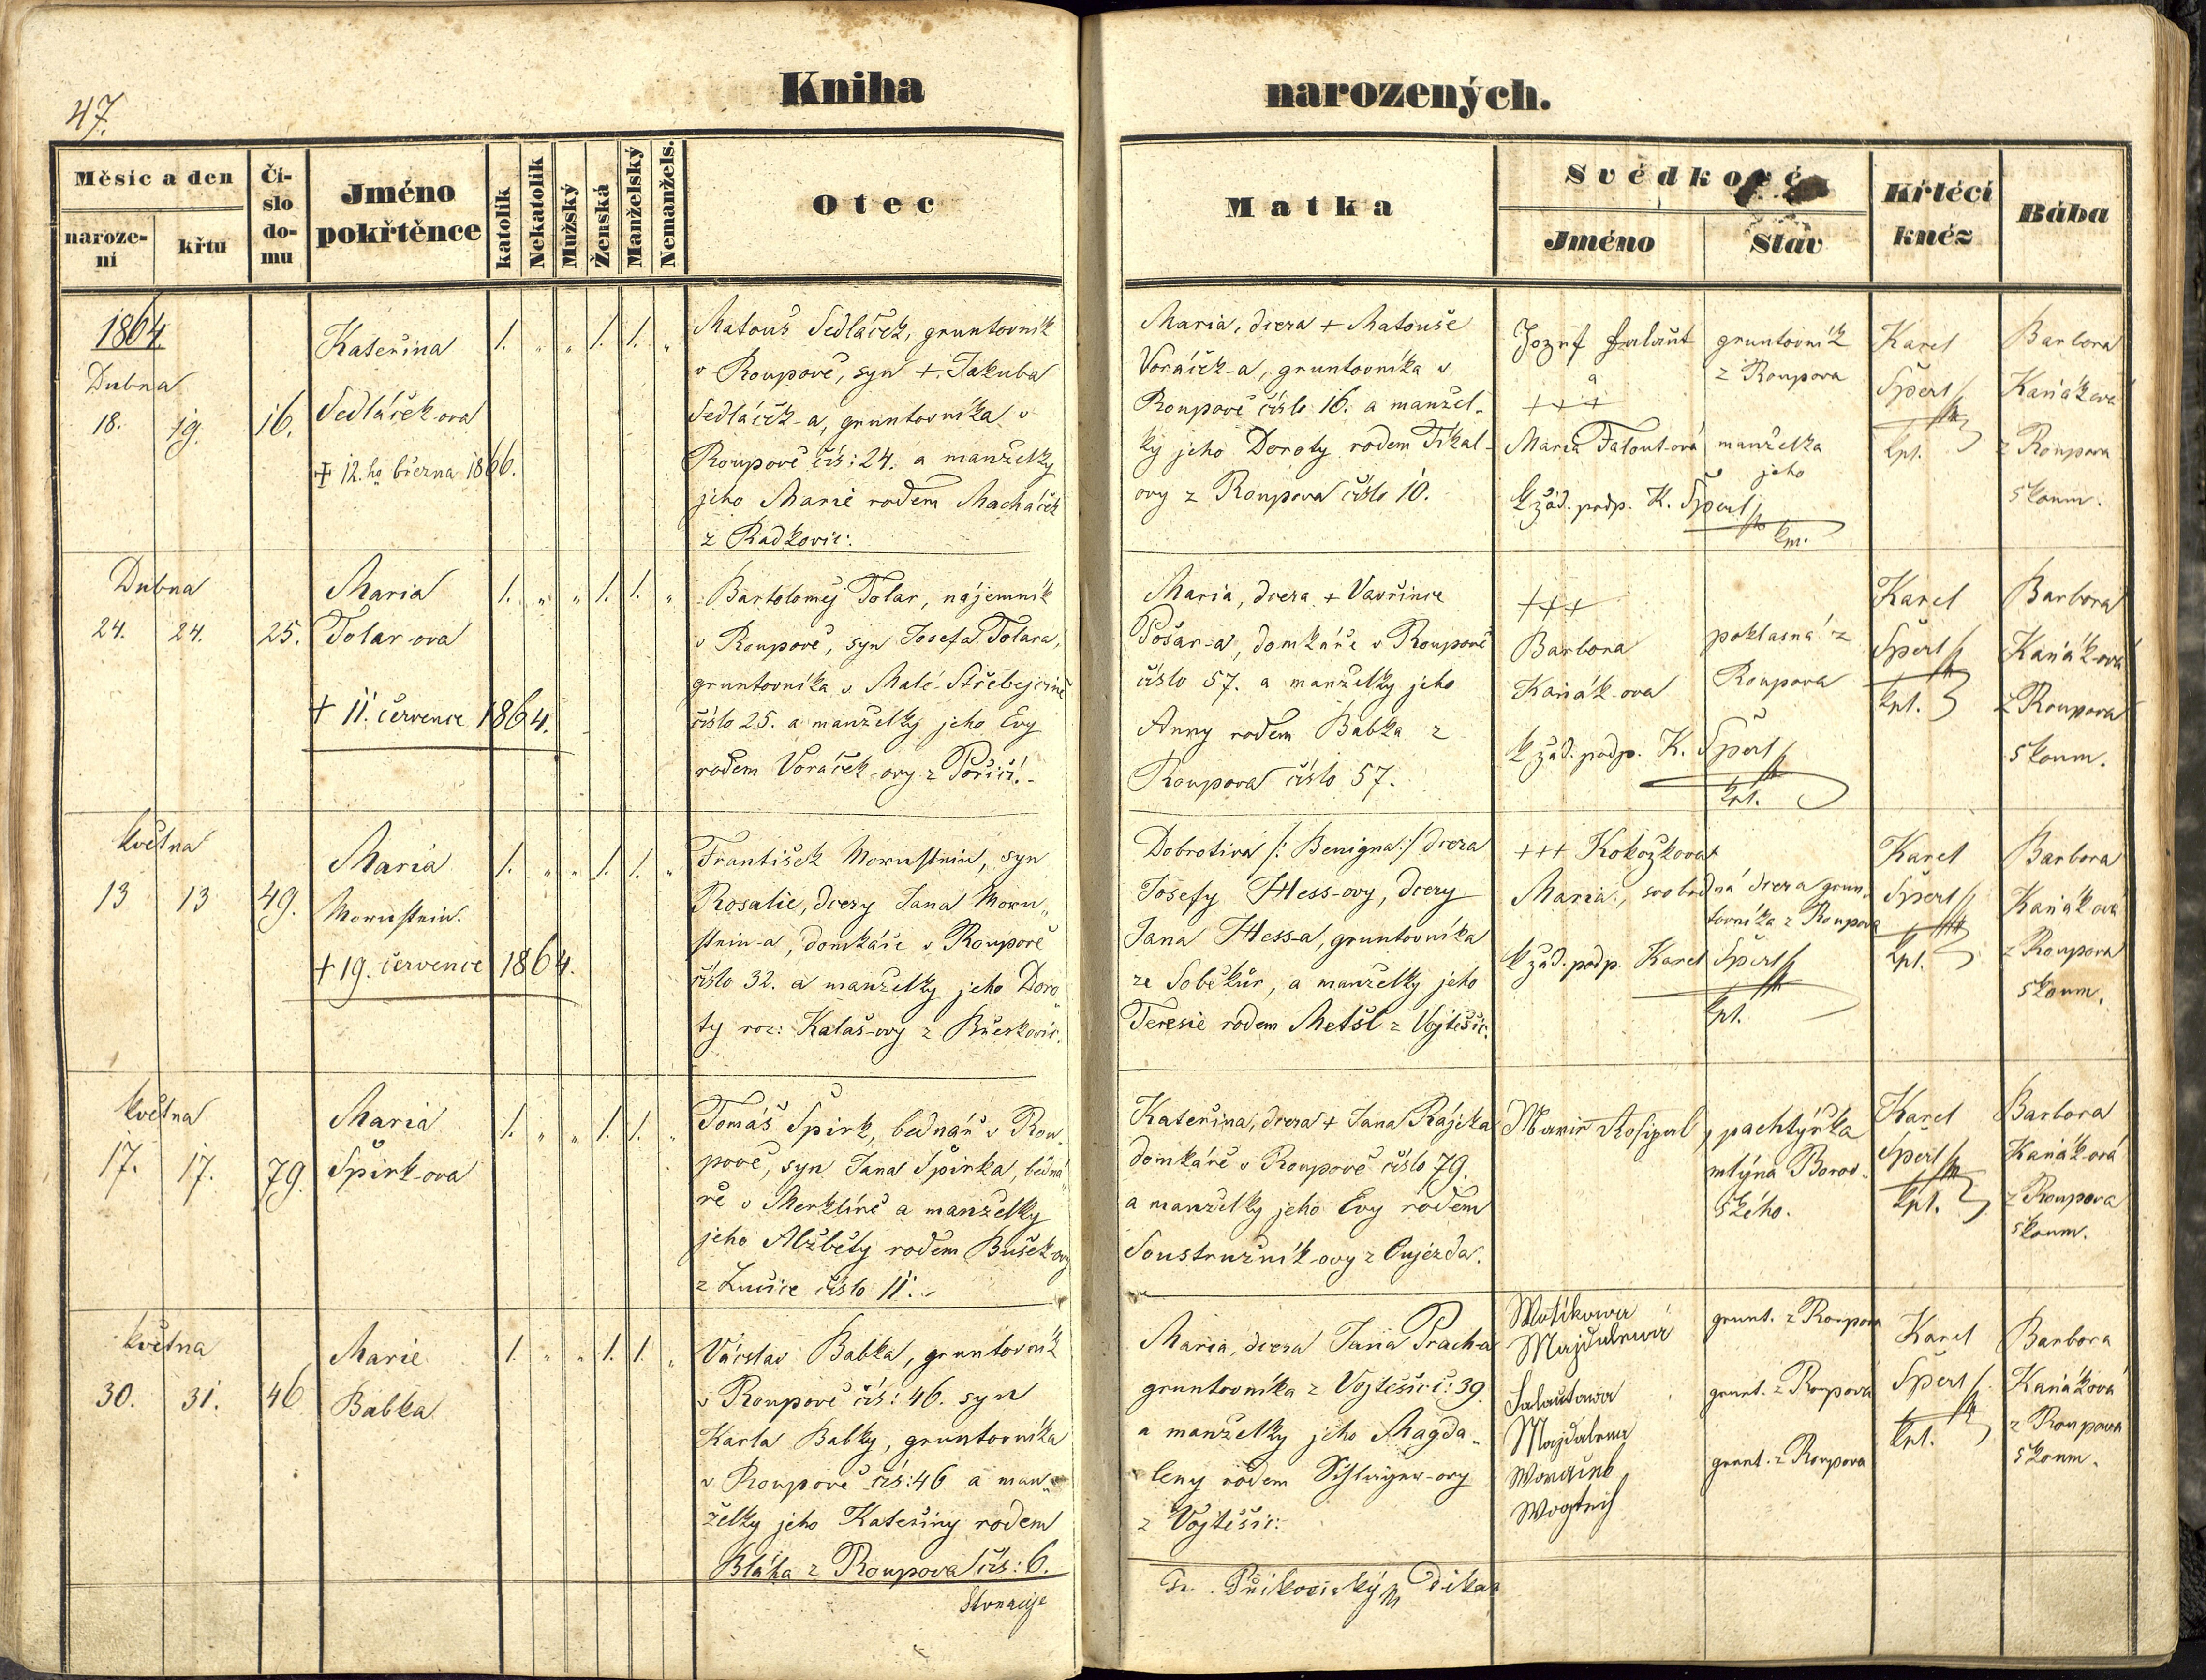 47.
Kniha narozených.
Měsíc a den
naroze-
ní
křtu
Čí-
slo
do-
mu
Jméno
pokřtěnce
katolík
Nekatolík
Mužský
Ženská
Manželský
Nemanžels.
Otec
Matka
Svědkové
Jméno
Stav
Křtěcí
kněz
Bába
1864
Dubna
18. 19. 16.
Kateřina
Sedláček-ova
+ 12.ho března 1866.
1. „ „ 1. 1. „
Matouš Sedláček, gruntovník
v Roupově, syn +. Jakuba
Sedláček-a, gruntovníka v
Roupově čís: 24. a manželky
jeho Marie rodem Macháček
z Radkovic.
Maria, dcera + Matouše
Voráček-a, gruntovníka v
Roupově číslo 16. a manžel-
ky jeho Doroty rodem Tikal-
ovy z Roupova číslo 10.
Jozef Falout
a
+++
Maria Falout-ová
k žád. podp. K. Šperl
gruntovník
z Roupova
manželka
jeho
Karel
Šperl
kpl.
Barbora
Kaňákova
z Roupova
zkoum.
Dubna
24. 24. 25.
Maria
Tolar-ova
+ 11. července 1864.
1. „ „ 1. 1. „
Bartoloměj Tolar, nájemník
v Roupově, syn Josefa Tolara,
gruntovníka v Malé-Střebejcině
číslo 25. a manželky jeho Evy
rodem Voráček-ovy z Poříčí.
Maria, dcera + Vavřince
Pošar-a, domkáře v Roupově
číslo 57. a manželky jeho
Anny rodem Babka z
Roupova číslo 57.
+++
Barbora
Kaňák-ova
k žád. podp. K. Šperl
kpl.
poklasná z
Roupova
Karel
Šperl
kpl.
Barbora
Kaňák-ová
z Roupova
zkoum.
května
13 13 49.
Maria
Mornstein.
+ 19. července 1864.
1. „ „ 1. 1. „
František Mornstein, syn
Rosalie, dcery Jana Morn„
stein-a, domkáře v Roupově
číslo 32. a manželky jeho Doro„
ty roz: Kalaš-ovy z Březkovic.
Dobrotiva /: Benigna :/ dcera
Josefy Hess-ovy, dcery
Jana Hess-a, gruntovníka
ze Soběkur, a manželky jeho
Teresie rodem Metšl z Vojtěšic.
+++ Kokožkova
Maria, svobodná dcera grun„
tovníka z Roupova
k žád. podp. Karel Šperl
kpl.
Karel
Šperl
kpl.
Barbora
Kaňákova
z Roupova
zkoum.
května
17. 17. 79.
Maria
Špirk-ova
1. „ „ 1. 1. „
Tomáš Špirk, bednář v Rou„
pově, syn Jana Špirka, bedná„
ře v Merklíně a manželky
jeho Alžběty rodem Bušek-ovy
z Lučice číslo 11.
Kateřina, dcera + Jana Rájcka
domkáře v Roupově číslo 79.
a manželky jeho Evy rodem
Soustružník-ovy z Oujezda.
Marie Rosipal, pachtýřka
mlýna Borov-
ského.
Karel
Šperl
kpl.
Barbora
Kaňák-ová
z Roupova
zkoum.
května
30. 31. 46
Marie
Babka
1. „ „ 1. 1. „
Václav Babka, gruntovník
v Roupově čís: 46. syn
Karla Babky, gruntovníka
v Roupově čís: 46 a man„
želky jeho Kateřiny rodem
Bláha z Roupova čís: 6.
Maria, dcera Jana Prach-a
gruntovníka z Vojtěšic č: 39
a manželky jeho Magda„
leny rodem
z Vojtěšic:
Majdalena
grunt. z Roupova
Falautowa
Majdalena
grunt. z Roupova
Wogtech
grunt. z Roupova
Karel
Šperl
kpl.
Barbora
Kaňáková
z Roupova
zkoum.